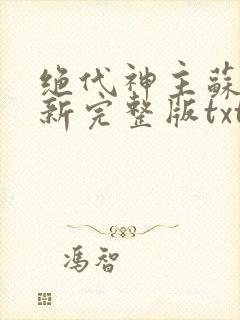 绝代神主蘇
新完整版txt
馮智